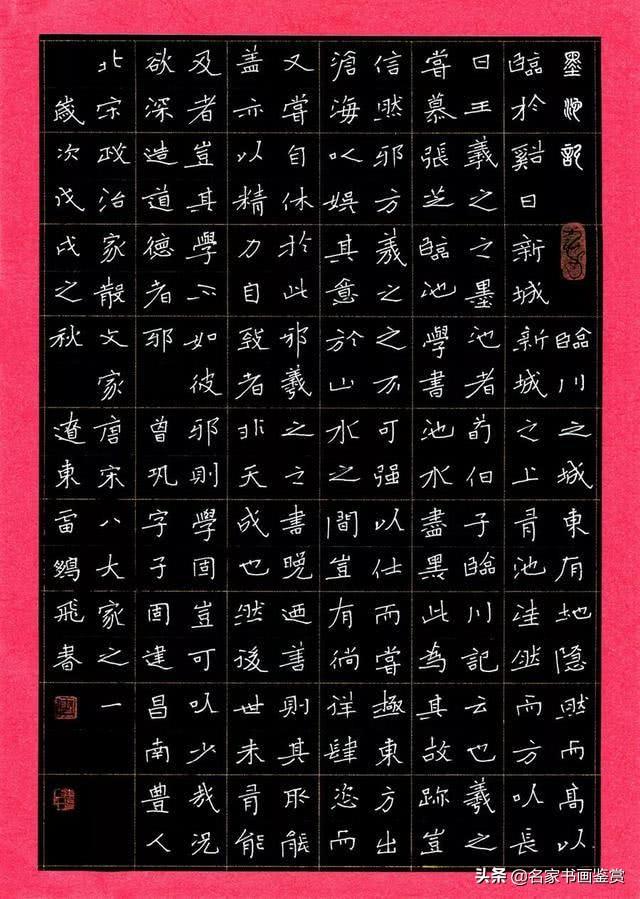 墨池記 臨川之城東有地隱然而高以
臨於谿曰新城新城之上有池洼然而方以長
曰王羲之之墨池者荀伯子臨川記云也羲之
嘗慕張芝臨池學書池水盡黑此為其故跡豈
信然邪方羲之之不可强以仕而嘗極東方出
滄海以娱其意於山水之間豈有徜徉肆恣而
又嘗自休於此邪羲之之書晚迺善則其所能
盖亦以精力自致者非天成也然後世未有能
及者豈其學不如彼邪則學固豈可以少哉況
欲深造道德者邪 曾巩字子固建昌南豊人
北宋政治家散文家唐宋八大家之一
歲次戊戌之秋 遼東雷飛書
头条 @名家书画鉴赏